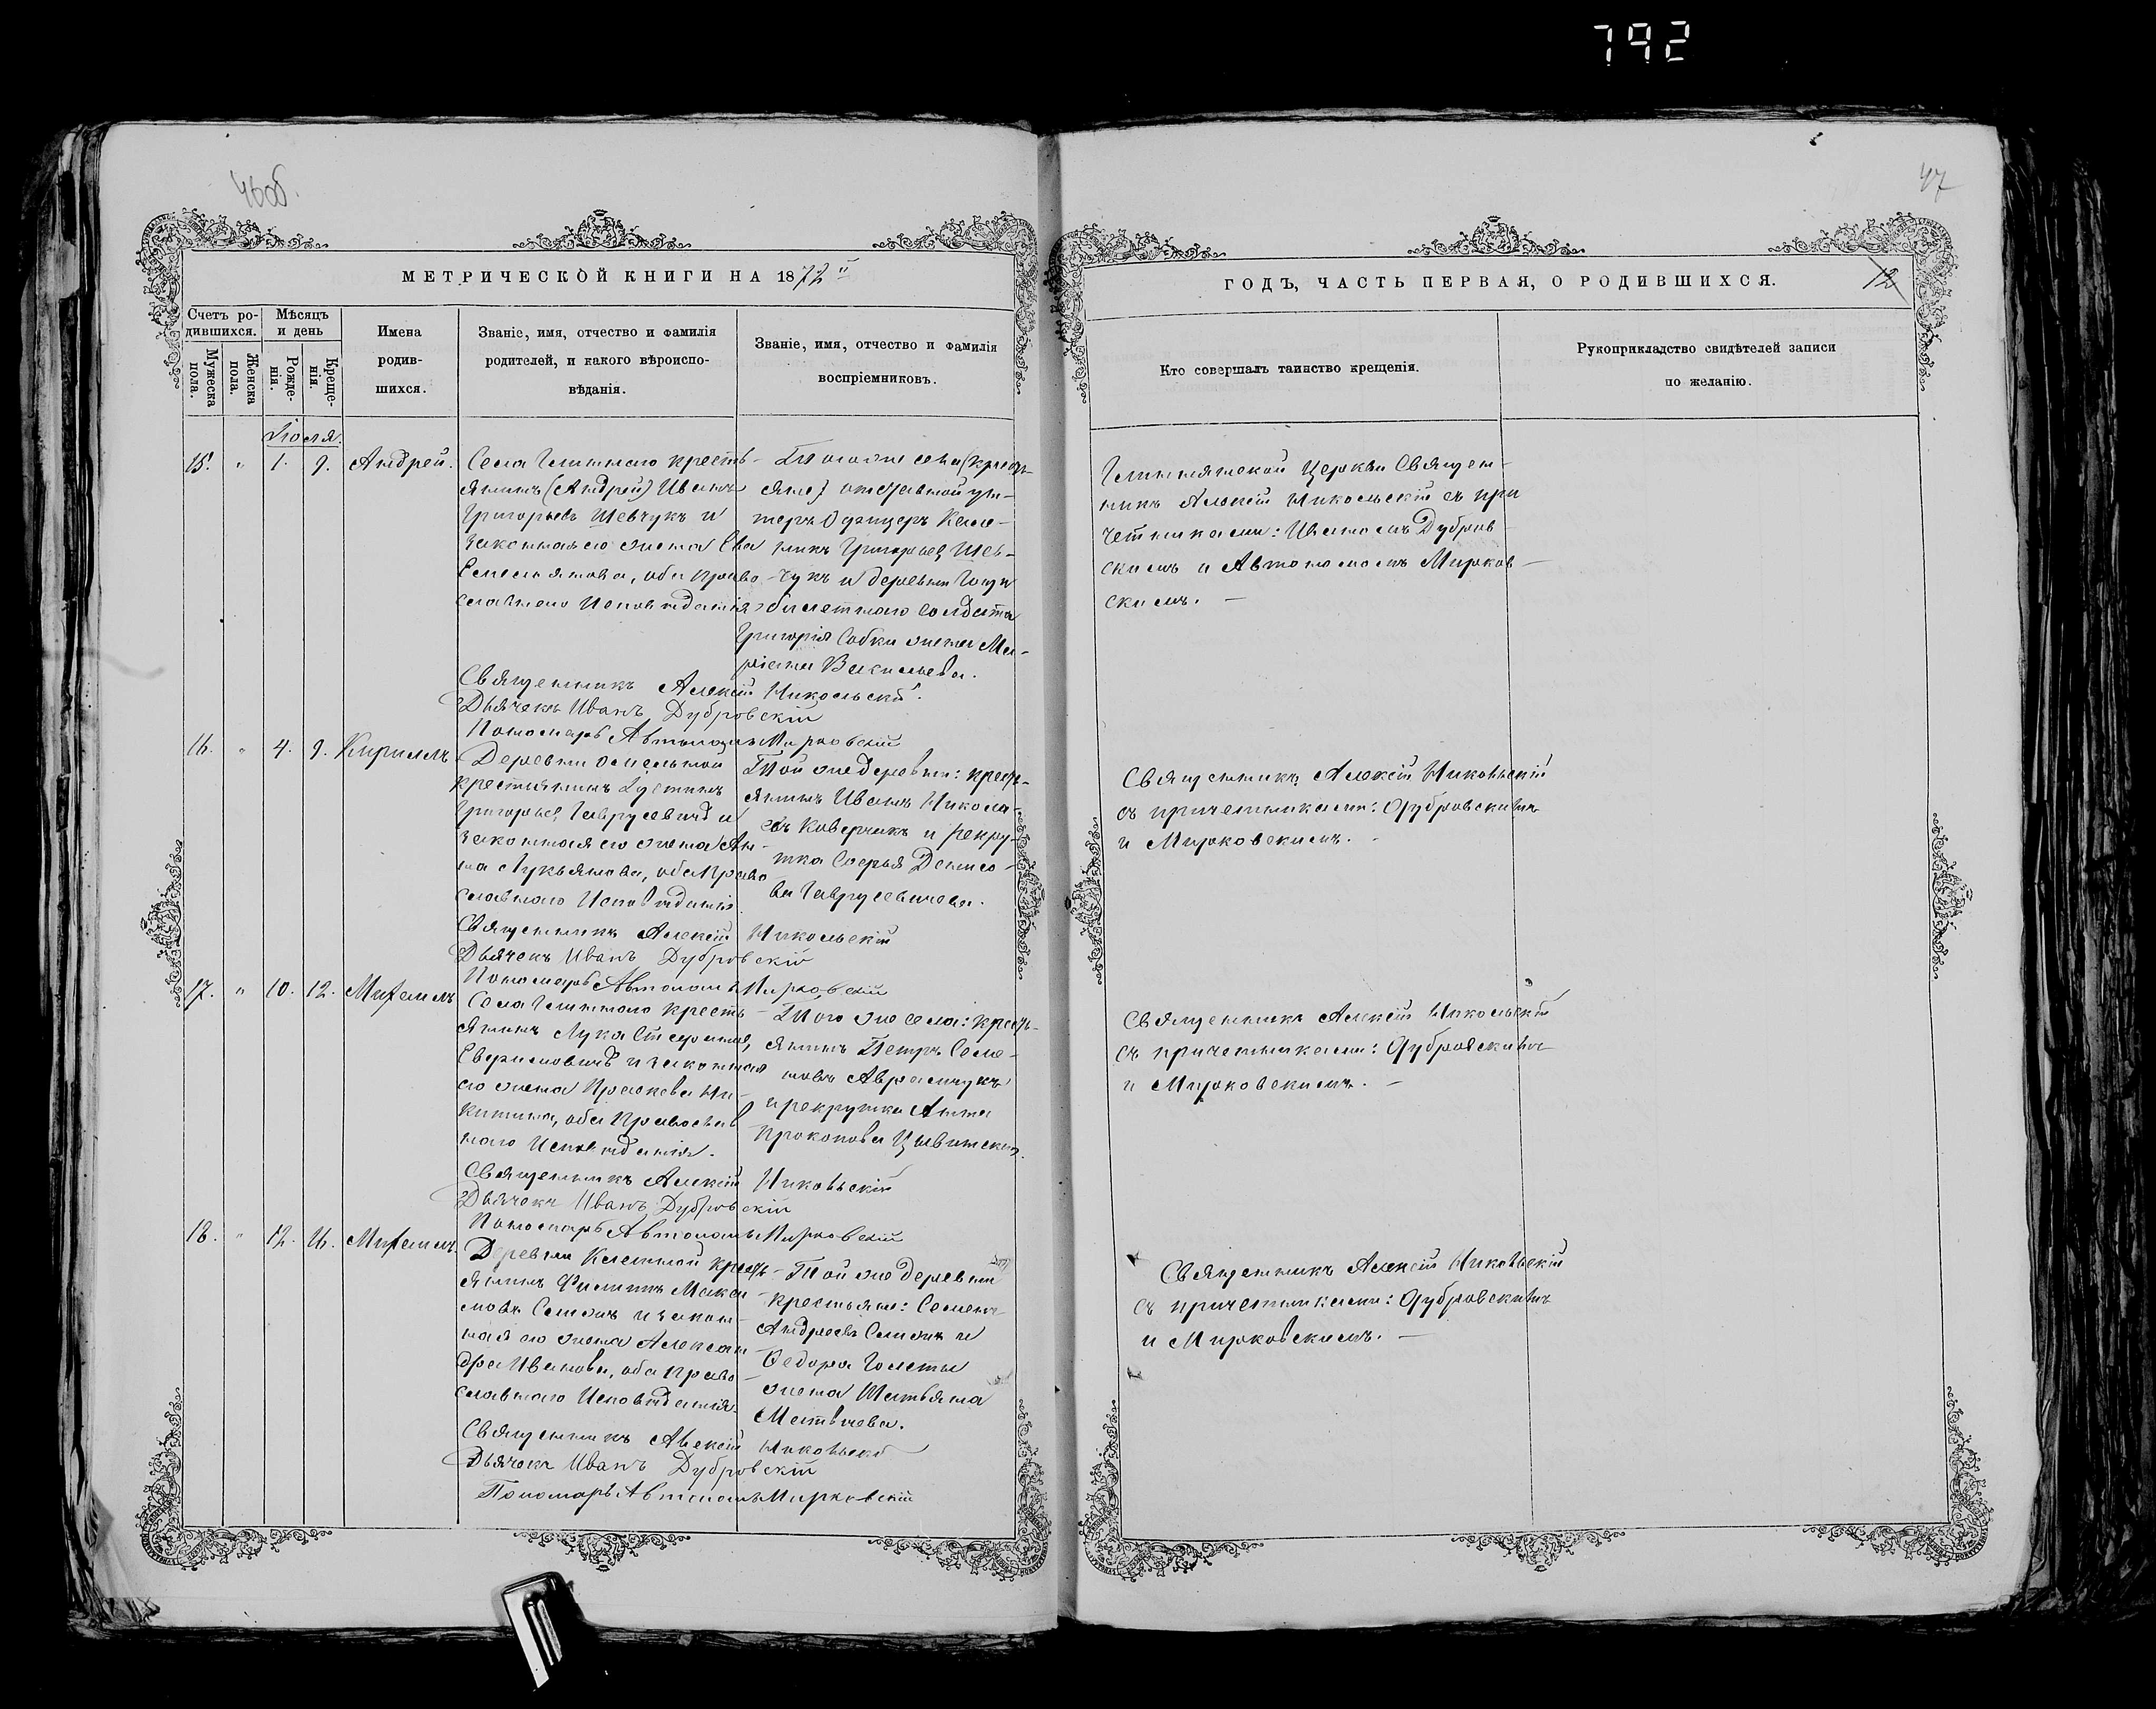 792
46об.
47
МЕТРИЧЕСКОЙ КНИГИ НА 1872й
Счетъ ро-
дившихся.
Мужеска
пола.
Женска
пола.
Мѣсяцъ
и день
Рожде-
нія.
Креще-
нія.
Имена
родив-
шихся.
Званіе, имя, отчество и фамилія
родителей, и какого вѣроиспо-
вѣданія.
Званіе, имя, отчество и фамилія
воспріемниковъ.
Іюля.
15. " 1. 9. Андрей.
Села Глиннаго кресть-
янинъ (Андрей) Иванъ
Григорьевъ Шевчукъ и
законная его жена Ева
Емельянова, оба Право-
славнаго Исповѣданія
Тогоже села (кресть-
яне) отставной ун-
теръ Офицеръ
Григорьев Шев-
чукъ и деревни
билетнаго солдата
Григорія Собки жена Ма-
ріанна Васильева.
Священникъ Алексій Никольскій.
Дьячекъ Иванъ Дубровскій
Пономарь Автономъ Мирковскій
16. " 4. 9. Кириллъ
Деревни Осмельной
крестьянинъ Іустинъ
Григорьев Гаврусевичъ и
законная его жена Ан-
на Лукьянова, оба Право-
славнаго Исповѣданія.
Той же деревни: кресть-
янинъ Иванъ Никола-
евъ Коверчикъ и рекру-
тка Софья Денисо-
ва Гаврусевичева.
Священникъ Алексій Никольскій
Дьячекъ Иванъ Дубровскій
Пономарь Автономъ Мирковскій
17. " 10. 12. Михаилъ
Села Глиннаго кресть-
янинъ Лука
и законная
его жена Праскева Ни-
китина, оба Православ-
наго Исповѣданія.
Того же села: кресть-
янинъ Петръ Семе-
новъ Аврамчукъ
и рекрутка Анна
Прокопова
Священникъ Алексій Никольскій
Дьячекъ Иванъ Дубровскій
Пономарь Автономъ Мирковскій
18. " 12. 16. Михаилъ.
Деревни Каменной кресть-
янинъ Филиппъ Макси-
мовъ и закон-
ная его жена Александ-
дра Иванова, оба Право-
славнаго Исповѣданія.
Той же деревни
крестьяне: Семенъ
Андреевъ и
Ѳедора Голеты
жена Татьяна
Матвѣева.
Священникъ Алексій Никольскій
Дьячекъ Иванъ Дубровскій
Пономарь Автономъ Мирковскій
ГОДЪ, ЧАСТЬ ПЕРВАЯ, О РОДИВШИХСЯ.
12
Кто совершалъ таинство крещенія.
Рукоприкладство свидѣтелей записи
по желанію.
Глиннянской Церкви Священ-
никъ Алексій Никольскій съ при
четниками: Иваномъ Дубров-
скимъ и Автономомъ Мирков-
скимъ.
Священникъ Алексій Никольскій
съ причетниками: Дубровскимъ
и Мирковскимъ.
Священникъ Алексій Никольскій
съ причетниками: Дубровскимъ
и Мирковскимъ.
Священникъ Алексій Никольскій
съ причетниками: Дубровскимъ
и Мирковскимъ.